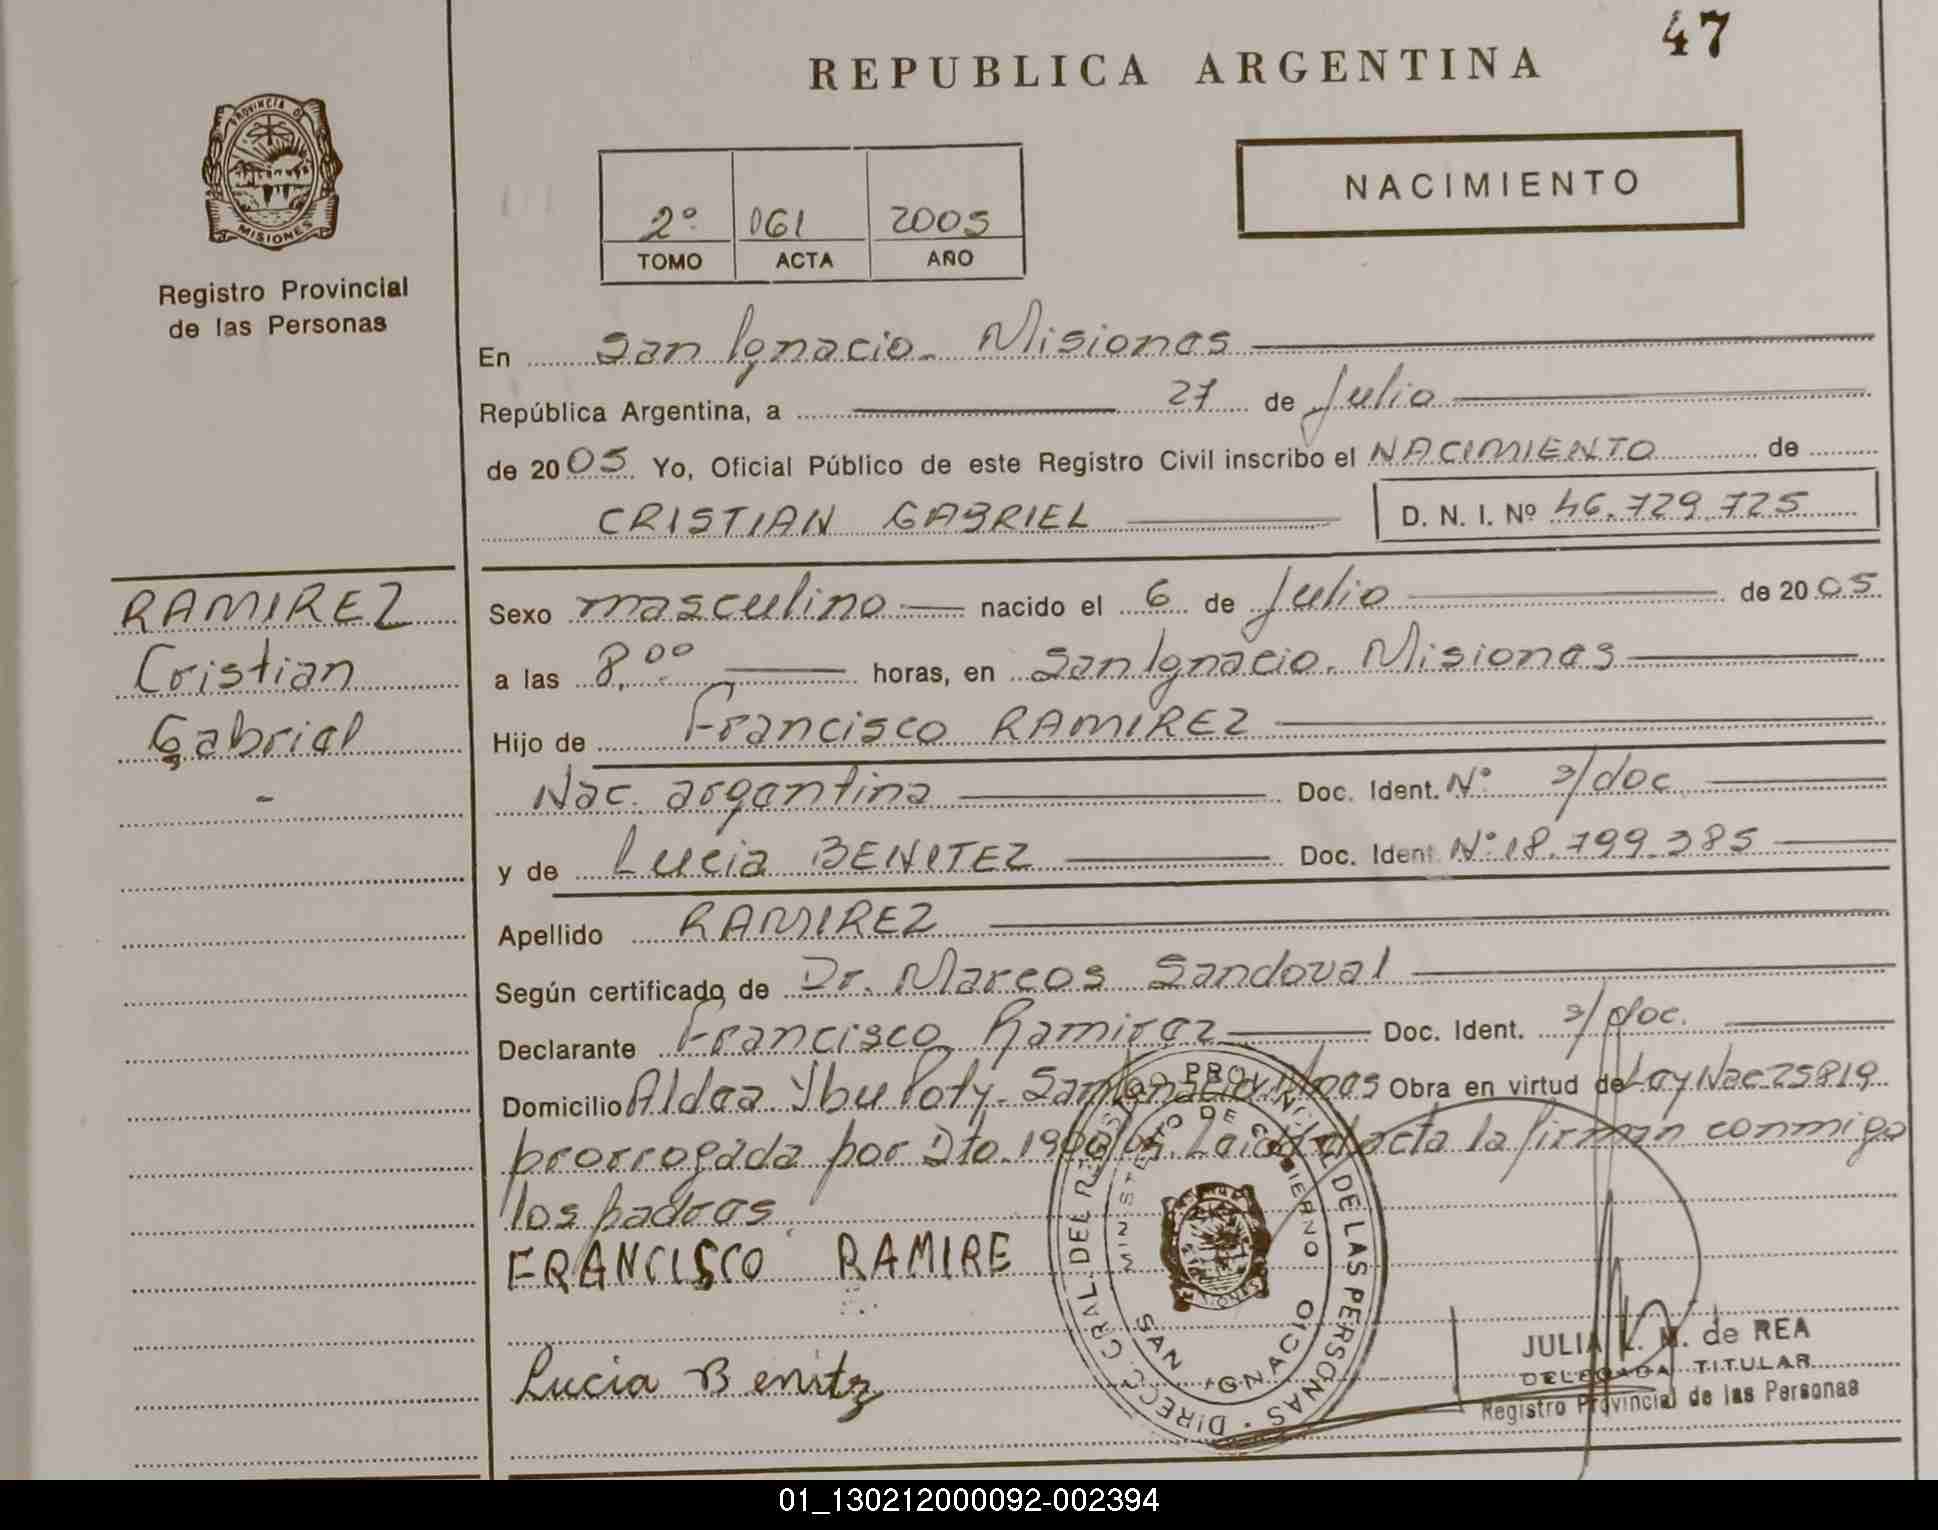 47
REPUBLICA ARGENTINA
PROVINCIA DE
MISIONES
Registro Provincial
de las Personas
2º 061 2005
TOMO ACTA AÑO
NACIMIENTO
En San Ignacio. Misiones
República Argentina, a 27 de Julio
de 2005 Yo, Oficial Público de este Registro Civil inscribo el NACIMIENTO de
CRISTIAN GABRIEL D. N. I. Nº 46.729.725
RAMIREZ
Cristian
Gabriel
-
Sexo masculino nacido el 6 de Julio de 2005
a las 8,00 horas, en San Ignacio. Misiones
Hijo de Francisco RAMIREZ
Nac. argentina Doc. Ident. Nº s/doc
y de Lucia BENITEZ Doc. Ident. Nº 18.799.385
Apellido RAMIREZ
Según certificado de Dr. Marcos Sandoval
Declarante Francisco Ramirez Doc. Ident. s/doc.
Domicilio Aldea Ybu Poty. San Ignacio. Mnes Obra en virtud de Ley Nac 25819
prorrogada por Dto. Leida el acta la firman conmigo
los padres
FRANCISCO RAMIRE
Lucia Benitz
DIRECC. GRAL. DEL REGISTRO PROVINCIAL DE LAS PERSONAS
MINISTERIO DE GOBIERNO
SAN IGNACIO
JULIA L. M. de REA
DELEGADA TITULAR
Registro Provincial de las Personas
01_130212000092-002394